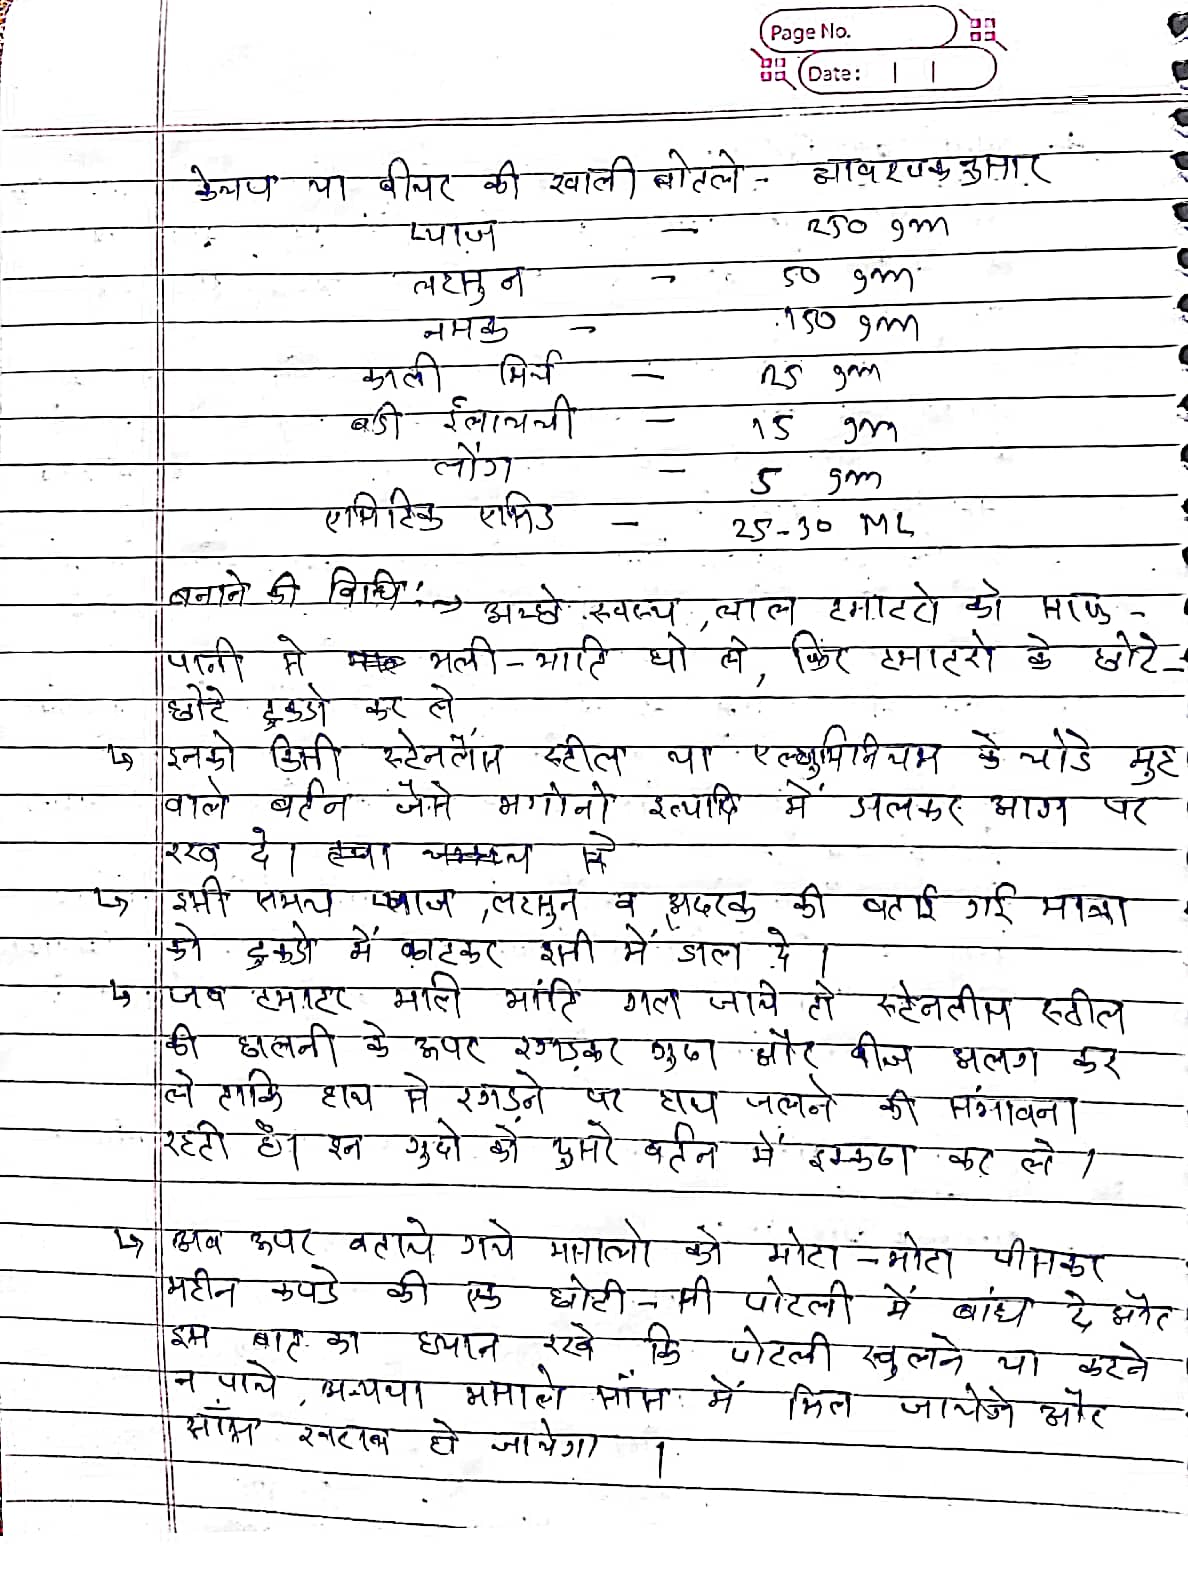 Page No.
Date:
केचप या बीयर की खाली बोतले - आवश्यकनुसार
प्याज - 250 gm
लहसुन - 50 gm
नमक - 150 gm
काली मिर्च - 25 gm
बडी ईलायची - 15 gm
लोंग - 5 gm
एसिटिक एसिड - 25-30 ML
बनाने की विधि :→ अच्छे स्वस्थ, लाल टमाटरो को साफ -
पानी से भली-भाति धो ले, फिर टमाटरो के छोटे-
छोटे टुकडो कर ले
↳ इनको किसी स्टेनलैस स्टील या एल्युमिनियम के चोडे मुह
वाले बर्तन जैसे भगोनो इत्यादि में डालकर आग पर
रख दे। से
↳ इसी समय प्याज, लहसुन व अदरक की बताई गई मात्रा
को टुकडो में काटकर इसी में डाल दे।
↳ जब टमाटर भाति भांति गल जाये तो स्टेनलीस स्टील
की छालनी के ऊपर रगड़कर गुदा और बीज अलग कर
ले ताकि हाथ से रगडने पर हाथ जलने की संभावना
रहती है। इन गुदो को दुसरे बर्तन में इक्कठा कर ले।
↳ अब ऊपर बताये गये मसालो को मोटा-मोटा पीसकर
महीन कपडे की एक छोटी-सी पोटली में बांध दे और
इस बात का ध्यान रखे कि पोटली खुलने या कटने
न पाये, अन्यथा मसाले सॉस में मिल जायेगे और
सॉस खराब हो जायेगा।